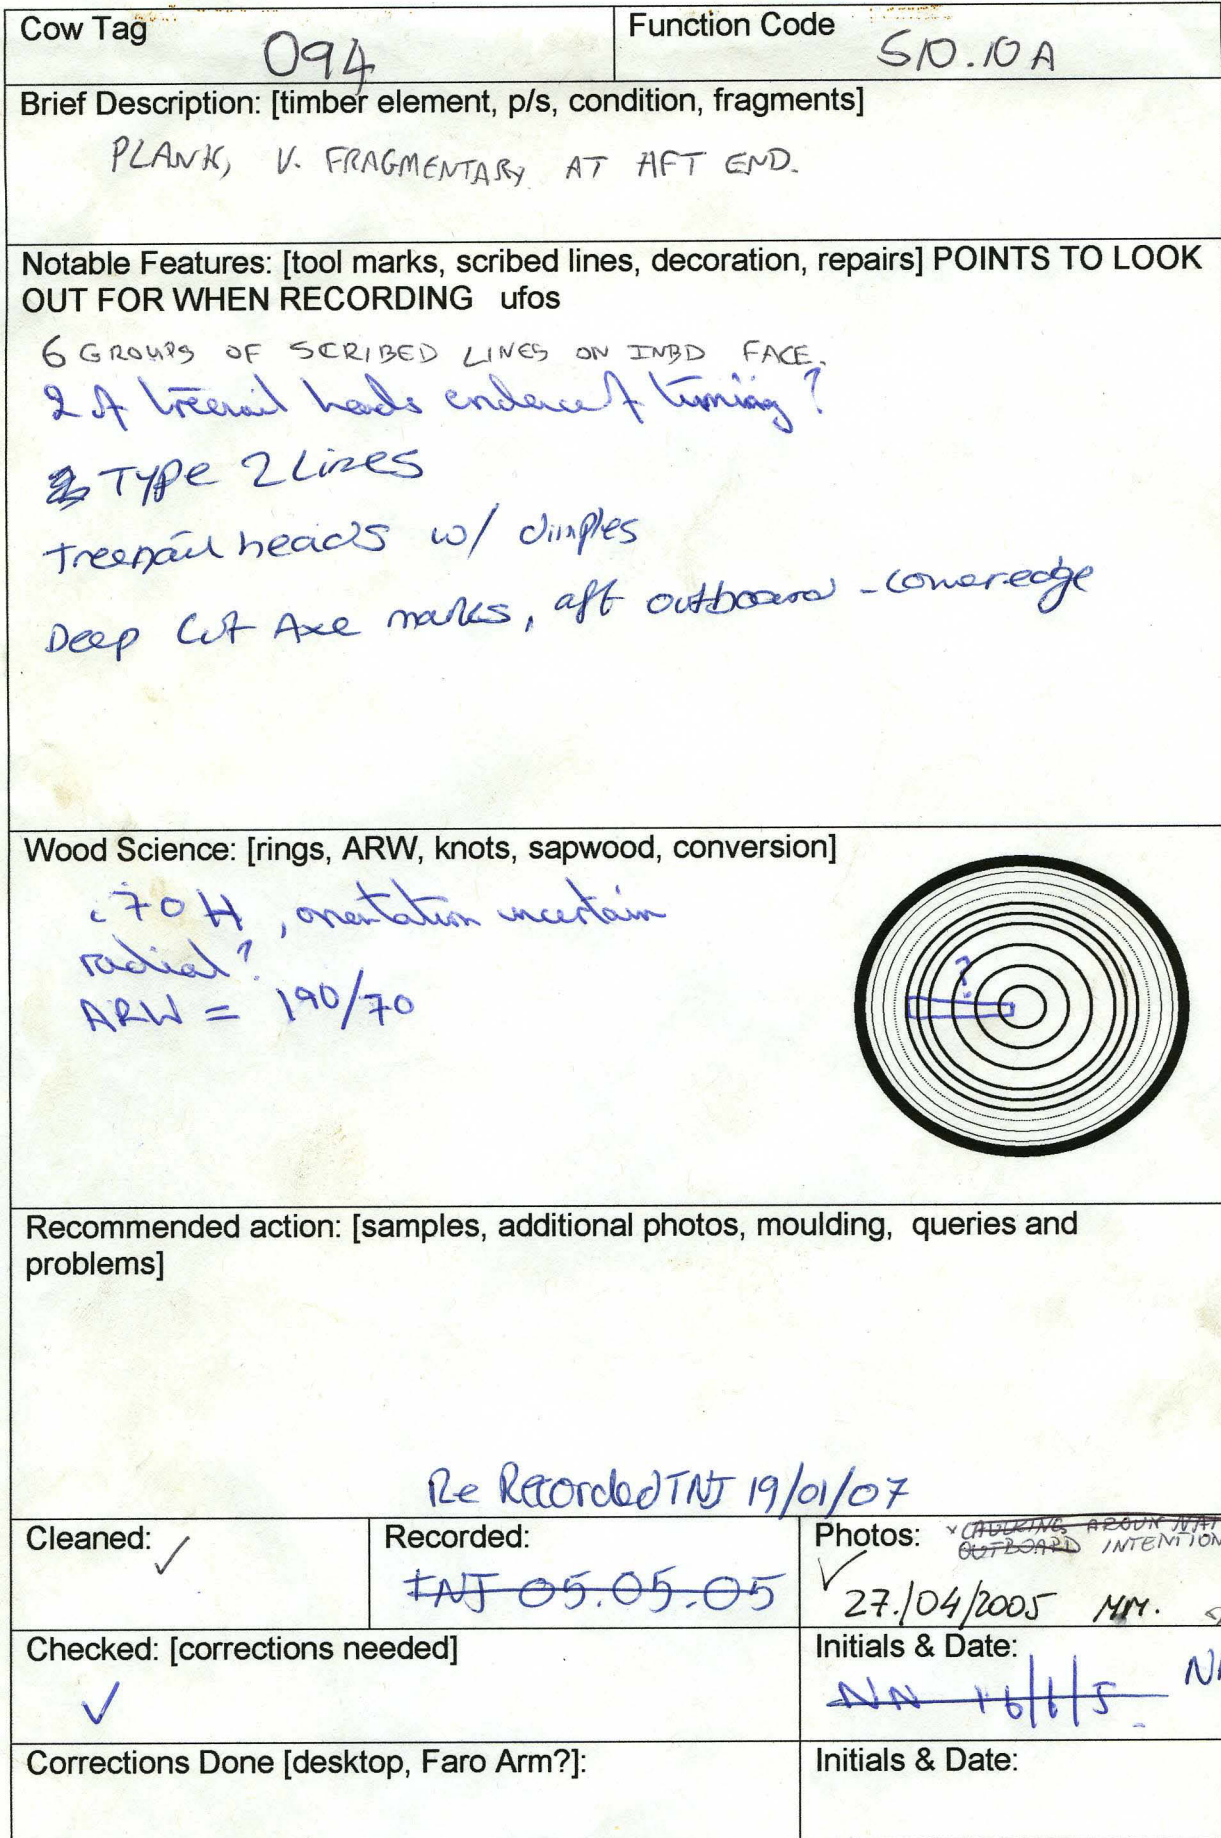 Cow Tag
094
Function Code
S10.10A
Brief Description: [timber element, p/s, condition, fragments]
PLANK, V. FRAGMENTARY AT AFT END.
Notable Features: [tool marks, scribed lines, decoration, repairs] POINTS TO LOOK
OUT FOR WHEN RECORDING ufos
6 GROUPS OF SCRIBED LINES ON INBD FACE.
2 of treenail heads evidence of turning?
Type 2 Lines
treenail heads w/ dimples
Deep Cut Axe marks, aft outboard - lower edge
Wood Science: [rings, ARW, knots, sapwood, conversion]
c 70 H, orientation uncertain
radial?
ARW = 190/70
?
Recommended action: [samples, additional photos, moulding, queries and
problems]
Re Recorded TNJ 19/01/07
Cleaned:
✓
Recorded:
TNJ 05.05.05
Photos:
OUTBOARD INTENTION
✓
27./04/2005 MM.
Checked: [corrections needed]
✓
Initials & Date:
NN 16/6/5
Corrections Done [desktop, Faro Arm?]:
Initials & Date: